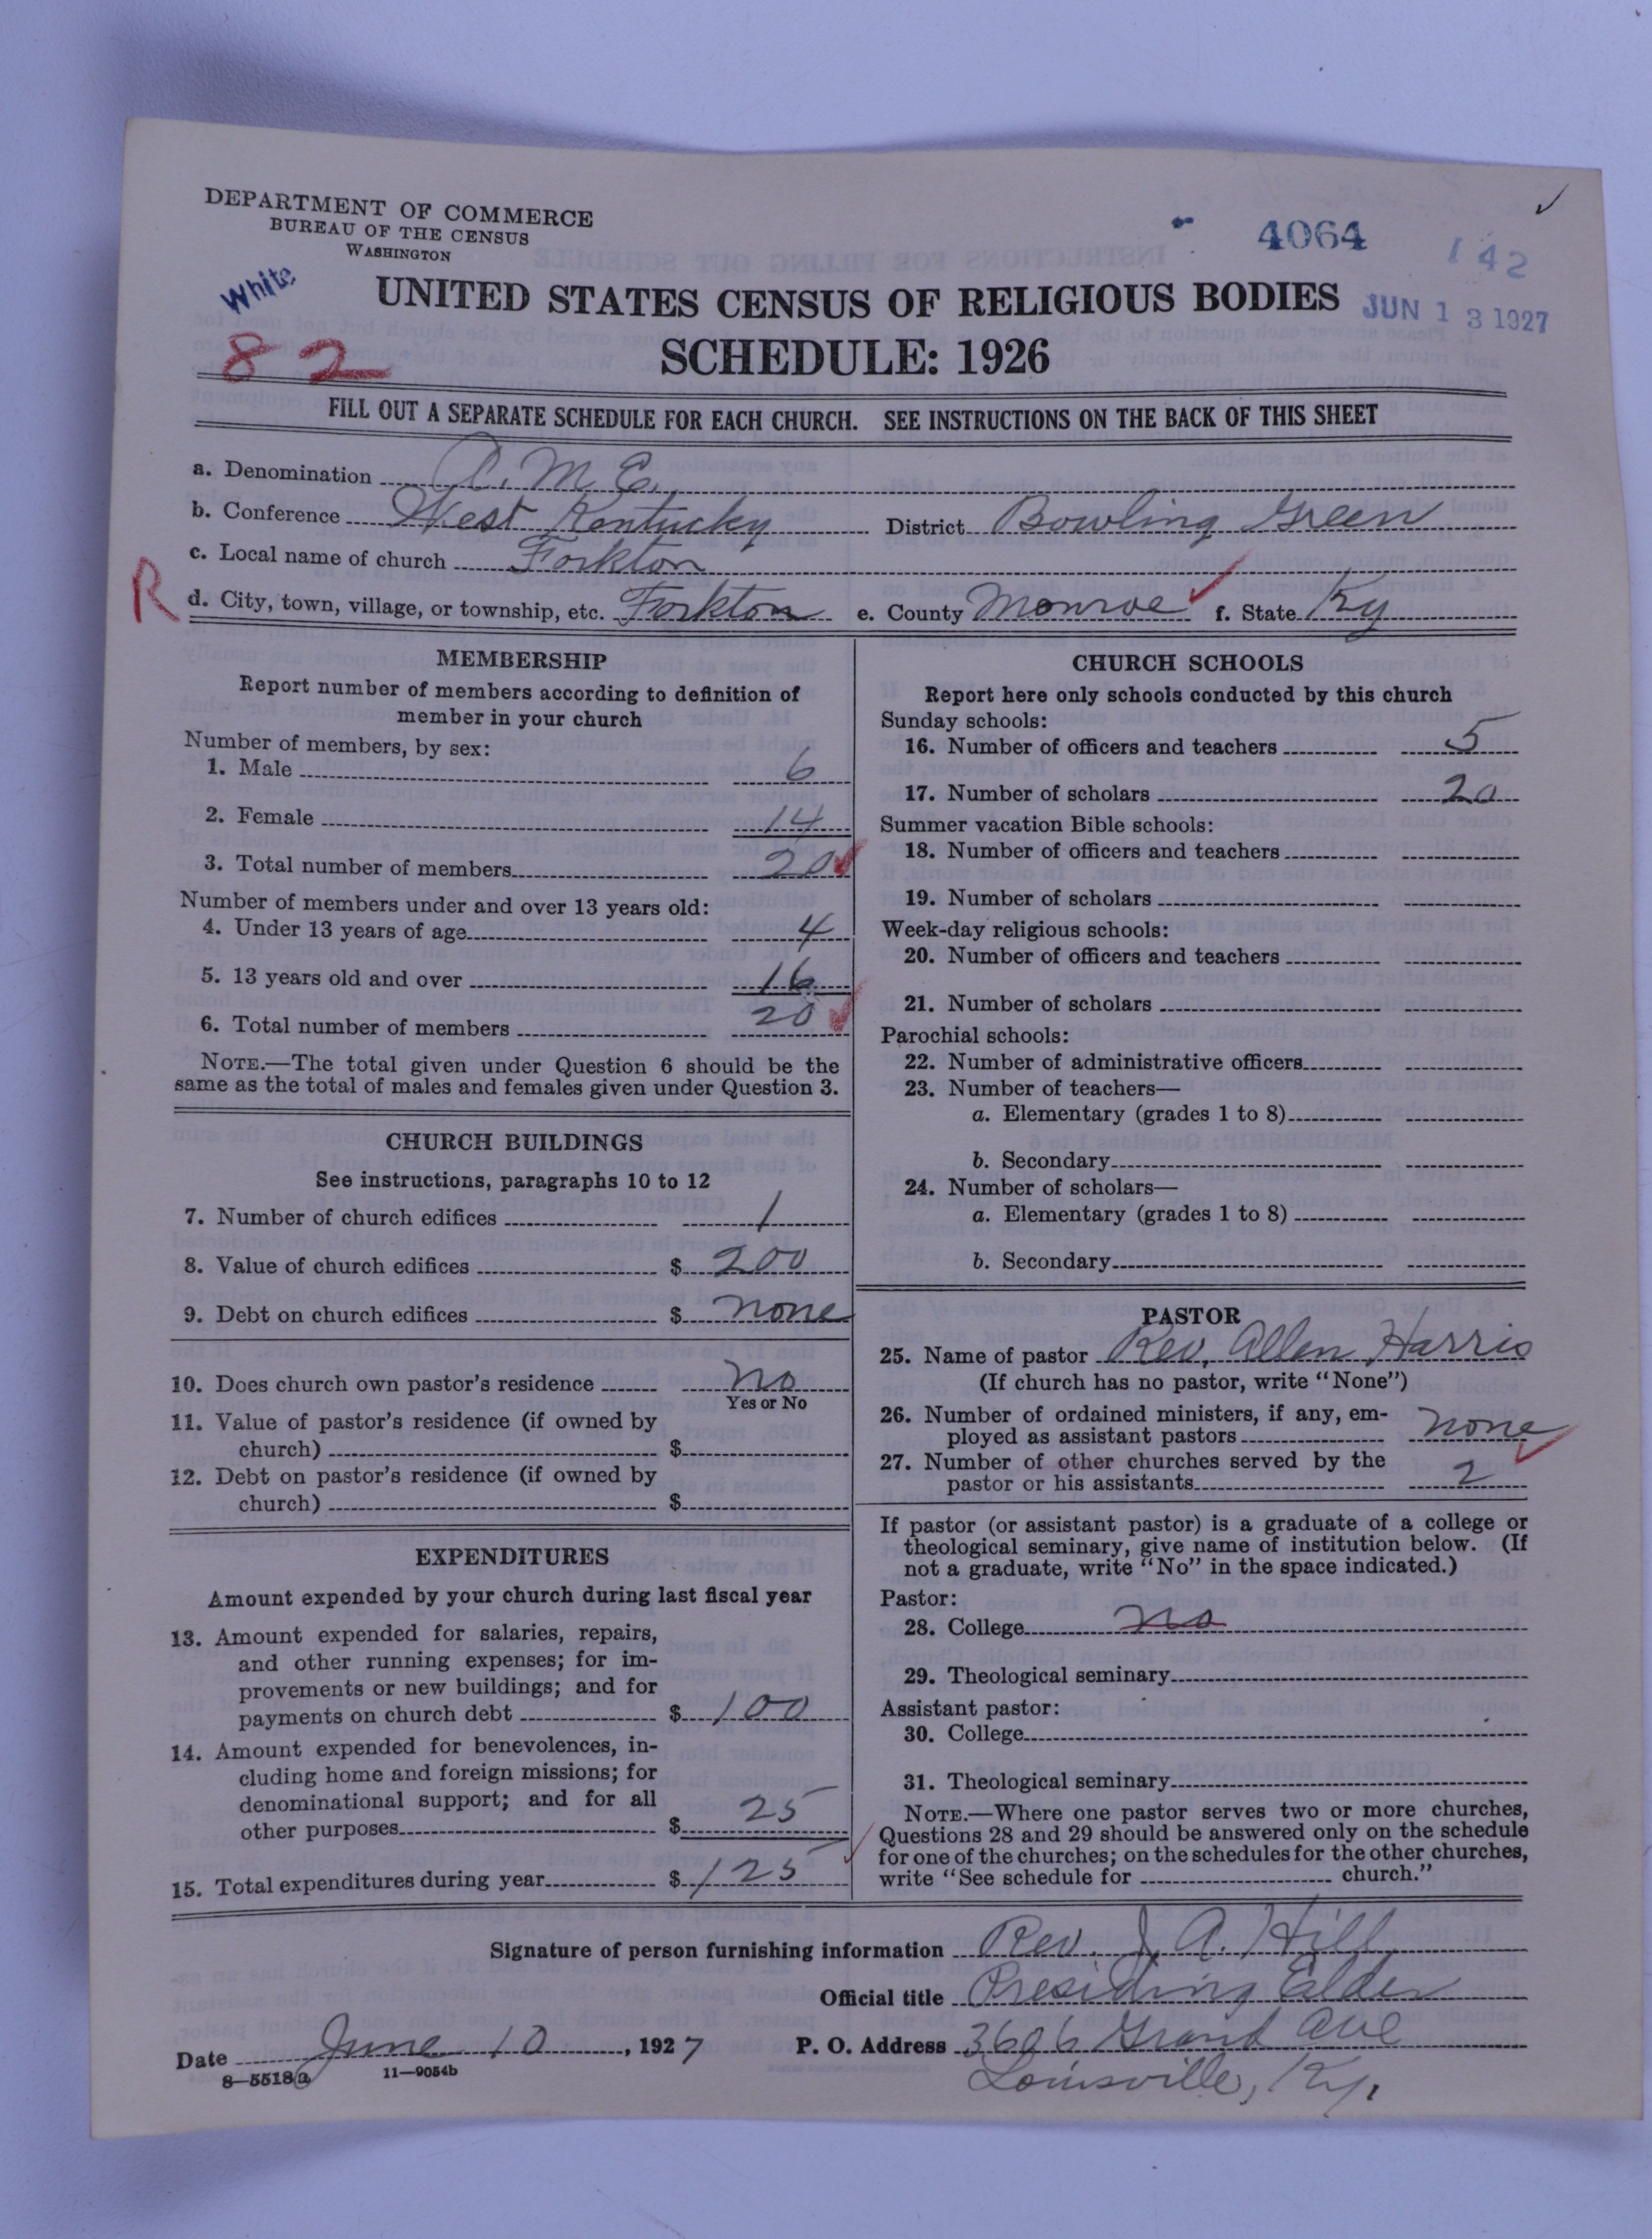 DEPARTMENT OF COMMERCE
BUREAU OF THE CENSUS
WASHINGTON
4064
142
White
UNITED STATES CENSUS OF RELIGIOUS BODIES
JUN 13 1927
82
SCHEDULE: 1926
FILL OUT A SEPARATE SCHEDULE FOR EACH CHURCH. SEE INSTRUCTIONS ON THE BACK OF THIS SHEET
a. Denomination A. M. E.
b. Conference West Kentucky District Bowling Green
c. Local name of church Forkton
R
d. City, town, village, or township, etc. Forkton e. County Monroe f. State Ky
MEMBERSHIP
Report number of members according to definition of
member in your church
Number of members, by sex:
1. Male 6
2. Female 14
3. Total number of members 20
Number of members under and over 13 years old:
4. Under 13 years of age 4
5. 13 years old and over 16
6. Total number of members 20
NOTE.—The total given under Question 6 should be the
same as the total of males and females given under Question 3.
CHURCH BUILDINGS
See instructions, paragraphs 10 to 12
7. Number of church edifices 1
8. Value of church edifices $ 200
9. Debt on church edifices $ none
10. Does church own pastor's residence no
Yes or No
11. Value of pastor's residence (if owned by
church) $
12. Debt on pastor's residence (if owned by
church) $
EXPENDITURES
Amount expended by your church during last fiscal year
13. Amount expended for salaries, repairs,
and other running expenses; for im-
provements or new buildings; and for
payments on church debt $ 100
14. Amount expended for benevolences, in-
cluding home and foreign missions; for
denominational support; and for all
other purposes $ 25
15. Total expenditures during year $ 125
CHURCH SCHOOLS
Report here only schools conducted by this church
Sunday schools:
16. Number of officers and teachers 5
17. Number of scholars 20
Summer vacation Bible schools:
18. Number of officers and teachers
19. Number of scholars
Week-day religious schools:
20. Number of officers and teachers
21. Number of scholars
Parochial schools:
22. Number of administrative officers
23. Number of teachers—
a. Elementary (grades 1 to 8)
b. Secondary
24. Number of scholars—
a. Elementary (grades 1 to 8)
b. Secondary
PASTOR
25. Name of pastor Rev. Allen Harris
(If church has no pastor, write "None")
26. Number of ordained ministers, if any, em-
ployed as assistant pastors none
27. Number of other churches served by the
pastor or his assistants 2
If pastor (or assistant pastor) is a graduate of a college or
theological seminary, give name of institution below. (If
not a graduate, write "No" in the space indicated.)
Pastor:
28. College no
29. Theological seminary
Assistant pastor:
30. College
31. Theological seminary
NOTE.—Where one pastor serves two or more churches,
Questions 28 and 29 should be answered only on the schedule
for one of the churches; on the schedules for the other churches,
write "See schedule for church."
Signature of person furnishing information Rev. J. A. Hill
Official title Presiding Elder
Date June 10, 1927 P. O. Address 3606 Grand Ave
8—5518a 11—9054b Louisville, Ky.